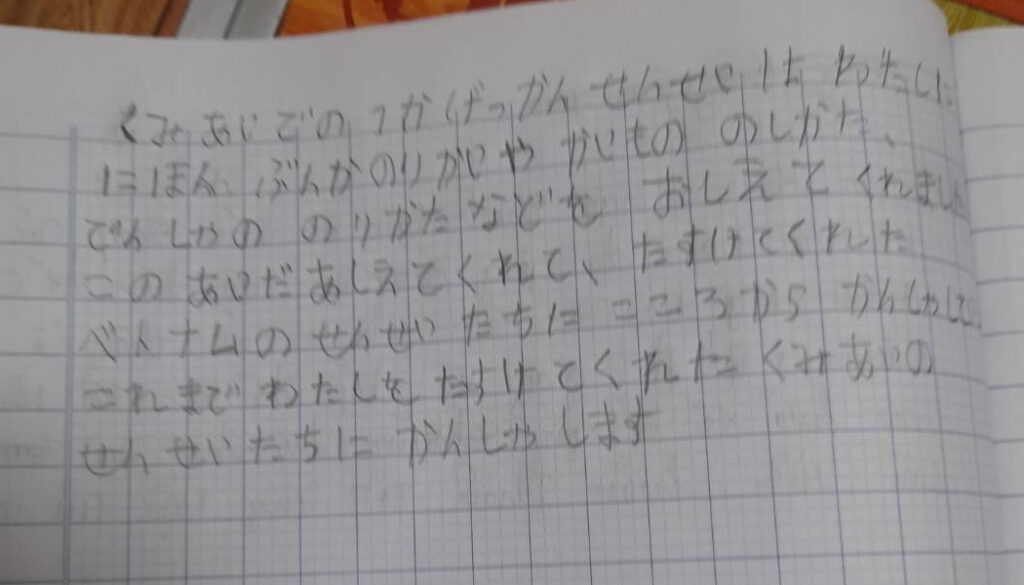 くみあいでの 1かげつかん せんせいは わたしに
にほん ぶんかのりかいや かいもの のしかた、
でんしゃの のりかた などを おしえて くれました
この あいだ おしえてくれて、 たすけてくれた
ベトナムの せんせい たちに こころから かんしゃして
これまで わたしを たすけてくれた くみあいの
せんせいたちに かんしゃします